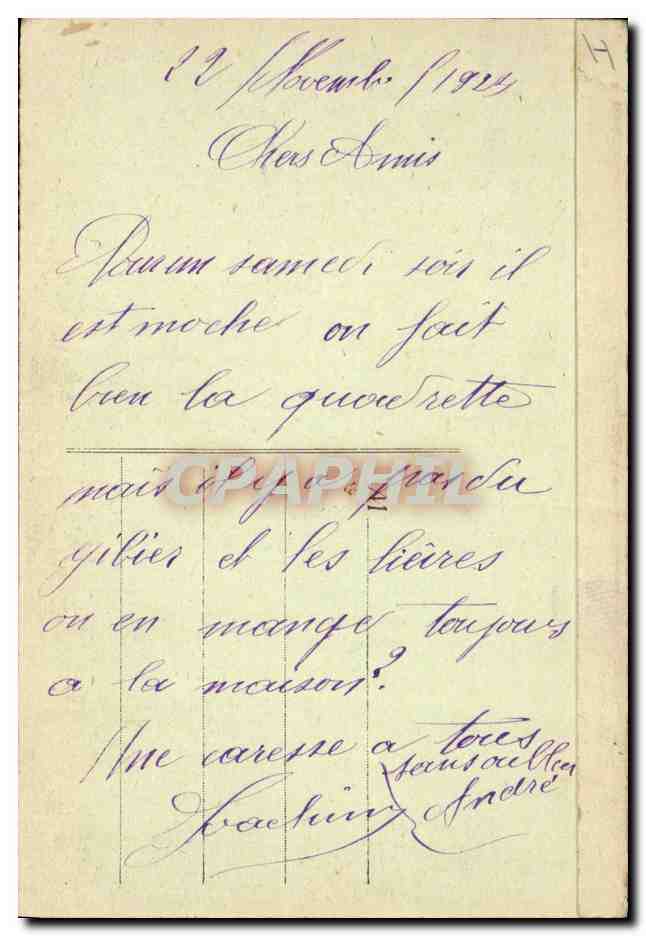 22 / Novembre / 1924
Chers Amis
Pour un samedi soir il
est moche on fait
bien la quadrette
mais il y a pas du
gibier et les lièvres
on en mange toujours
a la maison ?
Une caresse a tous
sans oublier
André
Joachim
CPAPHIL
H